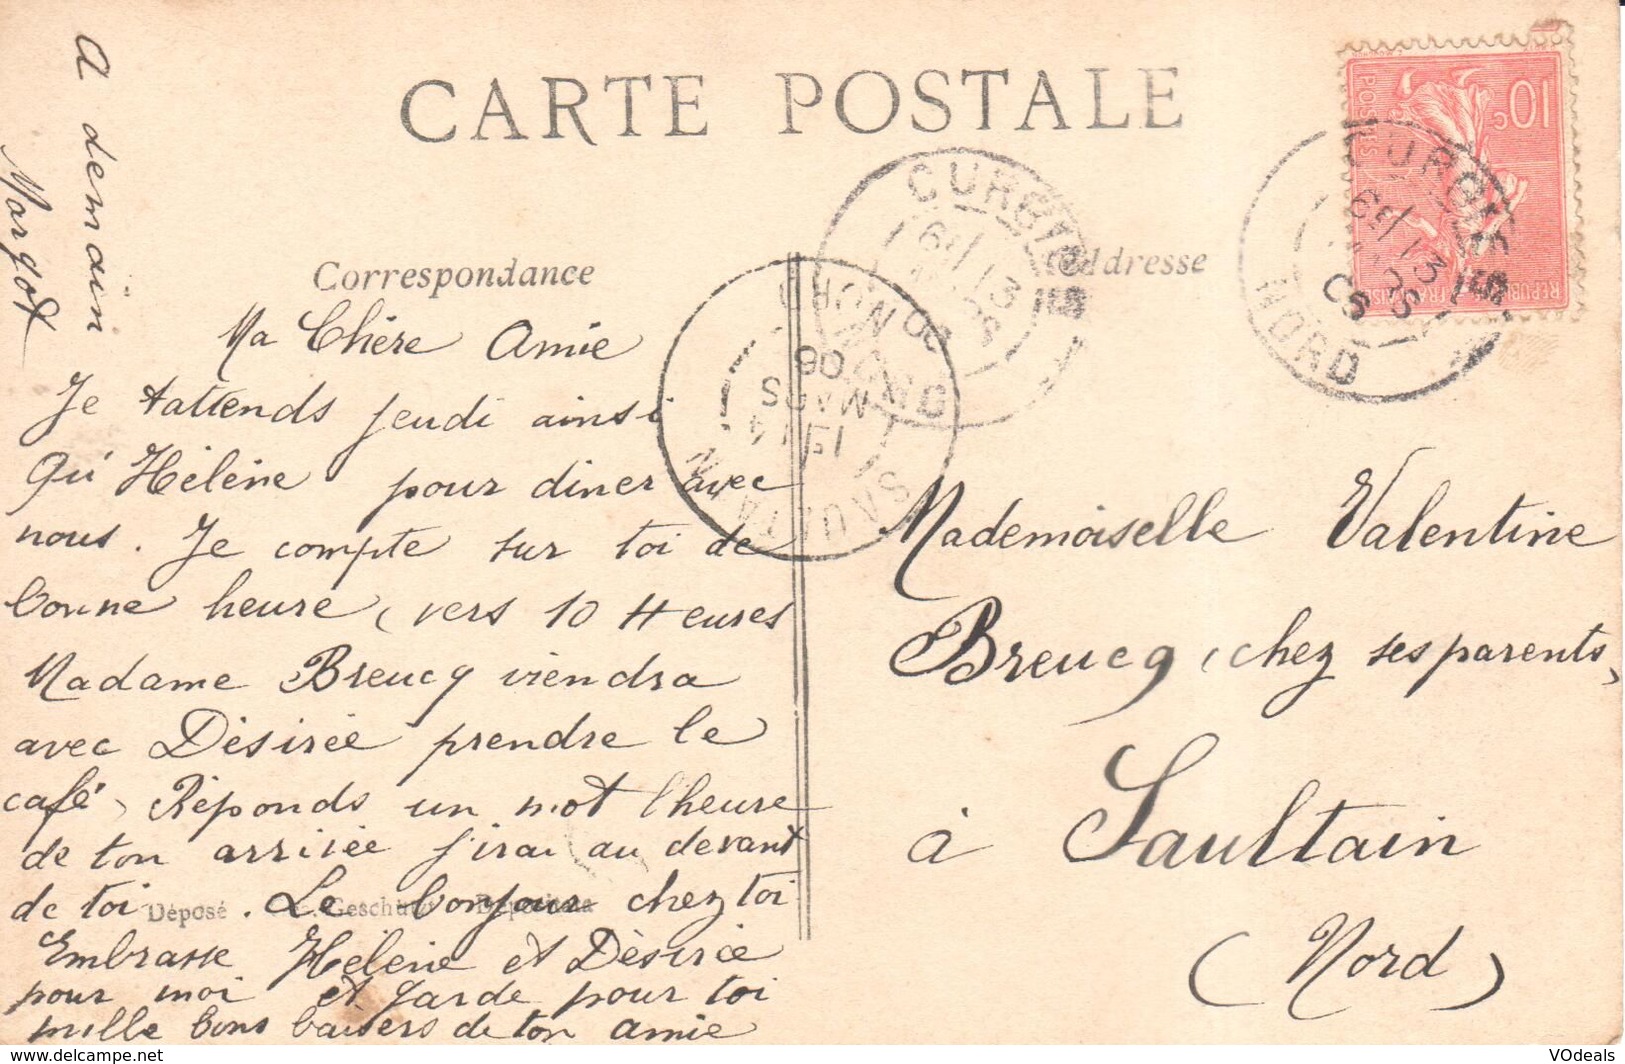 CARTE POSTALE
Correspondance
Adresse
A demain
Margot
Ma Chère Amie
Je t'attends jeudi ainsi
qu'Hélène pour diner avec
nous. Je compte sur toi de
bonne heure, vers 10 Heures
Madame Breucq viendra
avec Désirée prendre le
café, Réponds un mot l'heure
de ton arrivée j'irai au devant
de toi. Le bonjour chez toi
Déposé Geschützt
Embrasse Hélène et Désirée
pour moi et garde pour toi
mille bons baisers de ton amie
Mademoiselle Valentine
Breucq, chez ses parents,
à Saultain
(Nord)
10c
POSTES
REPUBLIQUE FRANÇAISE
CURGIES
13
NORD
CURGIES
13
NORD
SAULTAIN
14
MARS
06
NORD
VDeals
www.delcampe.net